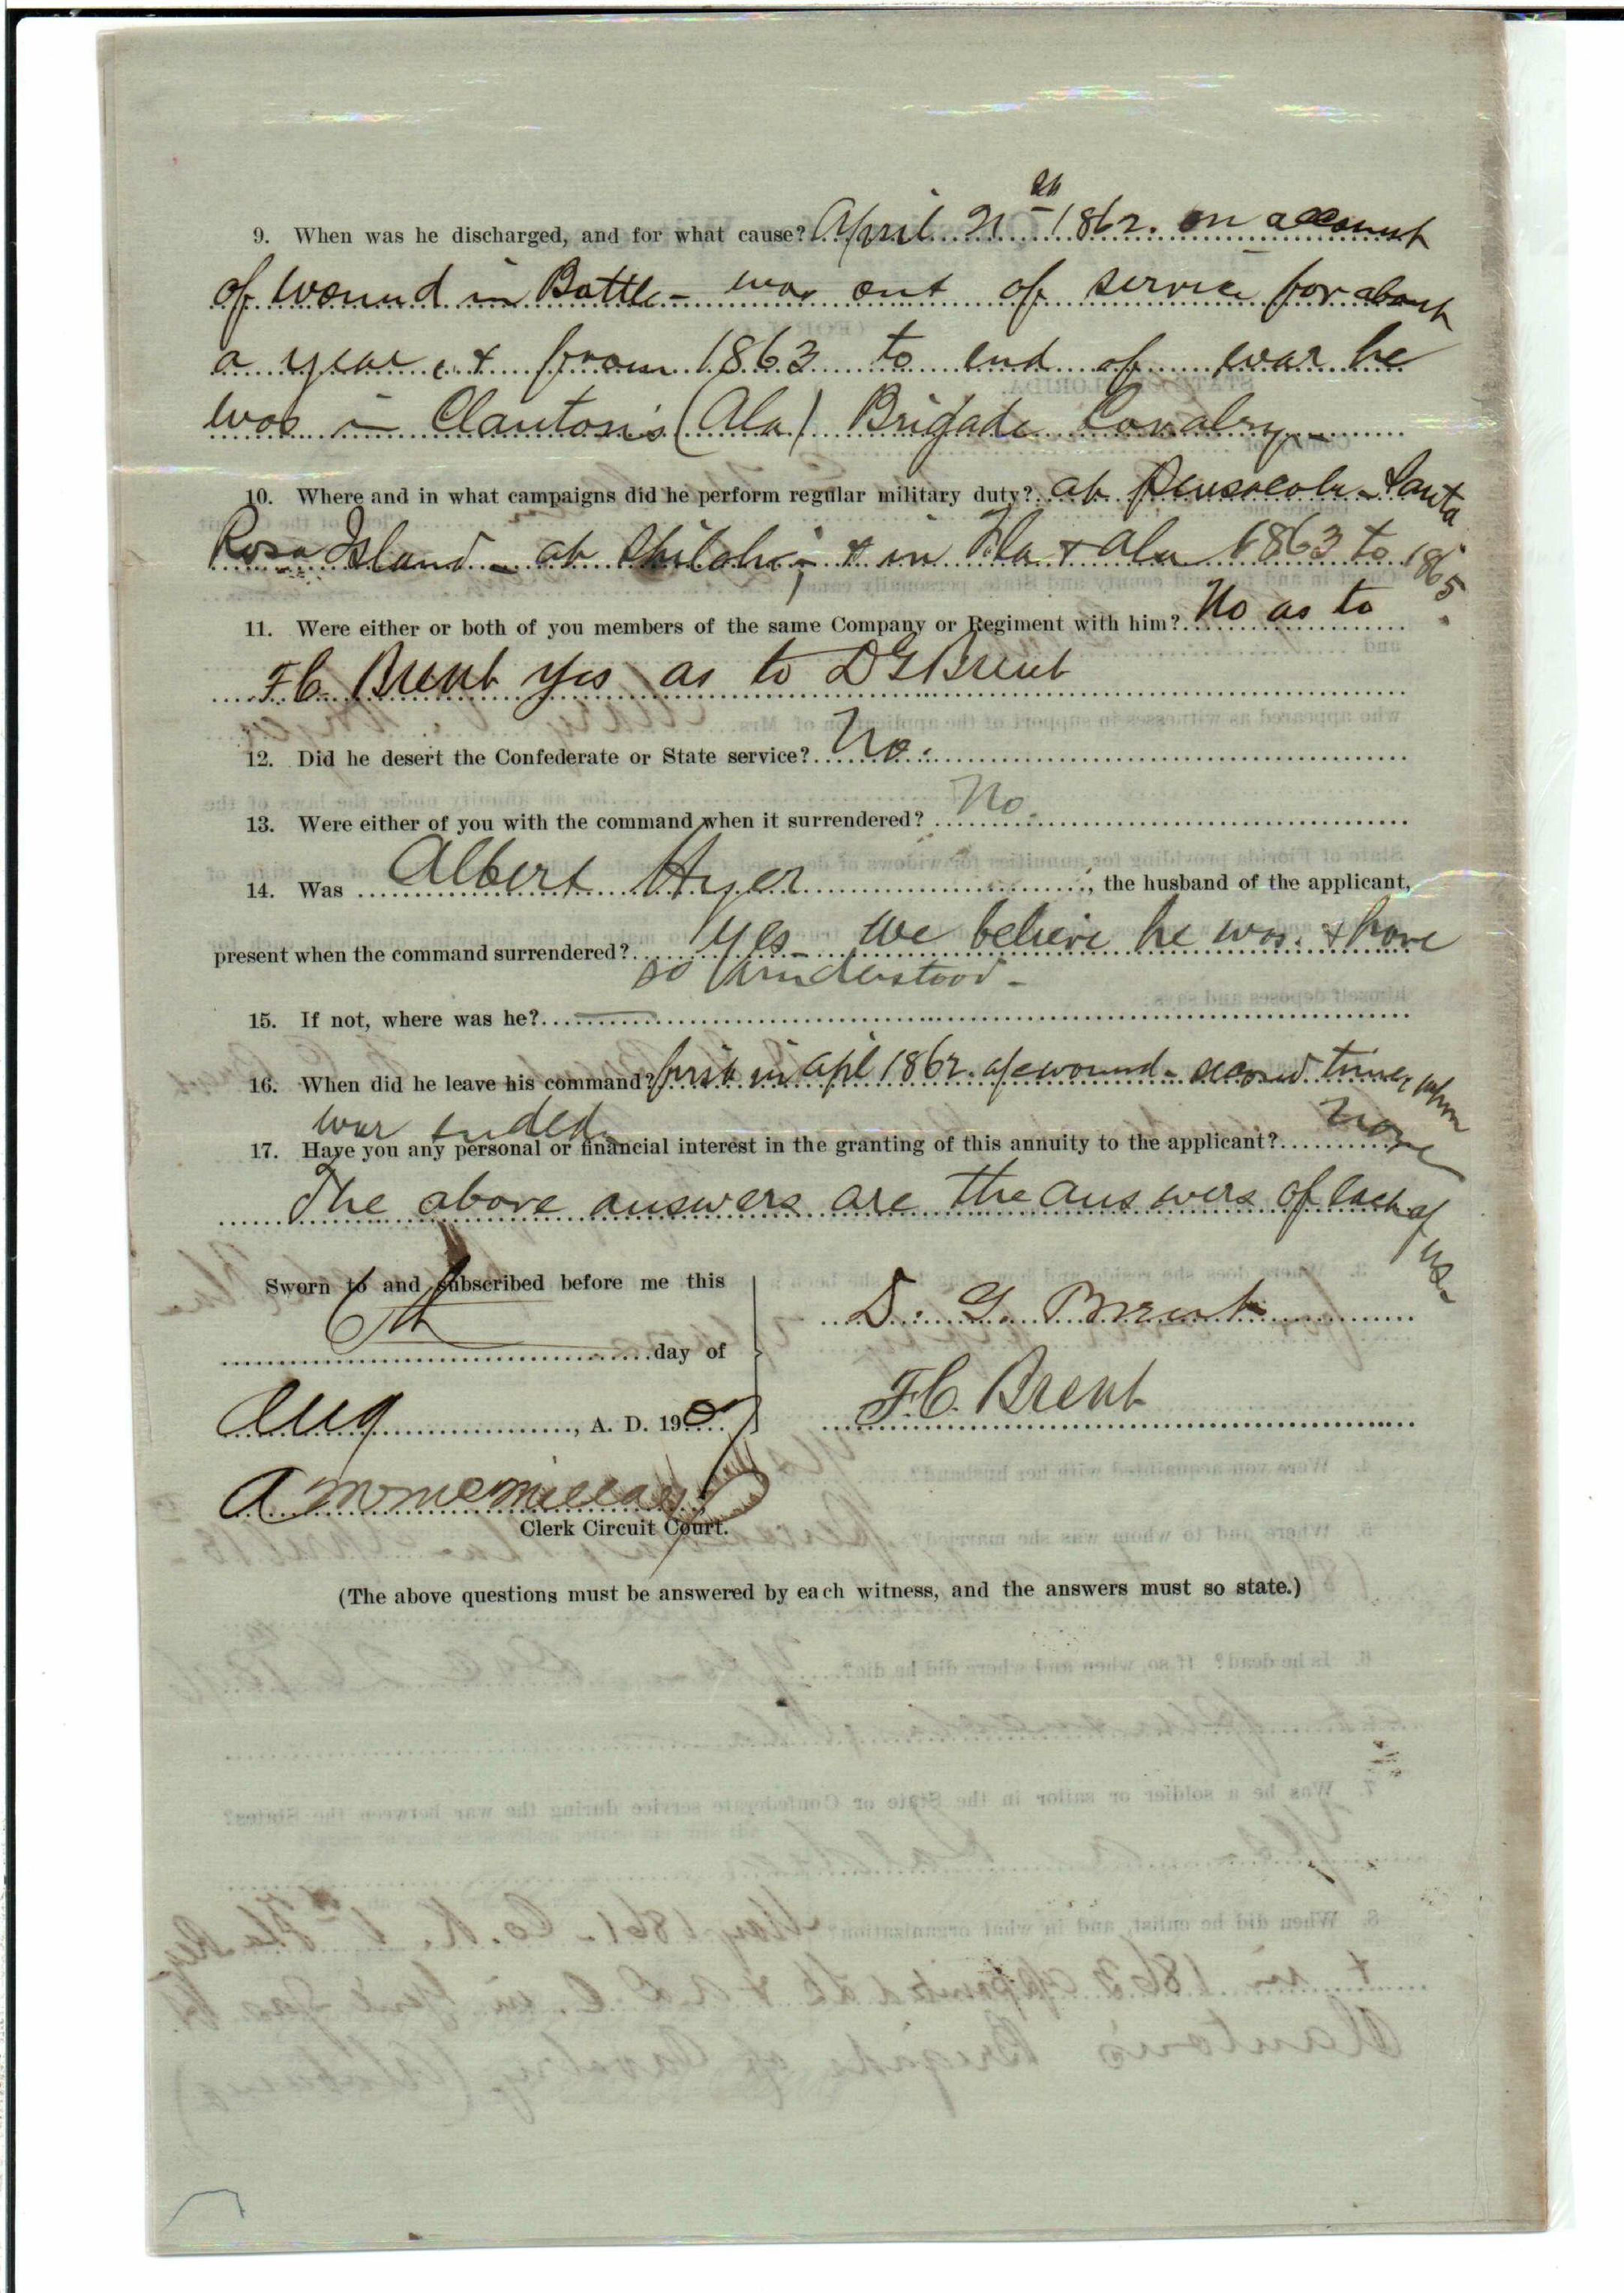 9. When was he discharged, and for what cause? April 21st 1862. on account
of wound in Battle - was out of service for about
a year, & from 1863 to end of war he
was in Clanton's (Ala) Brigade Cavalry -
10. Where and in what campaigns did he perform regular military duty? at Pensacola - Santa
Rosa Island - at Shiloh; & in Fla & Ala 1863 to 1865.
11. Were either or both of you members of the same Company or Regiment with him? No as to
F.C. Brent Yes as to D G Brent
12. Did he desert the Confederate or State service? No.
13. Were either of you with the command when it surrendered? No.
14. Was Albert Hyer, the husband of the applicant,
present when the command surrendered? Yes - we believe he was. & have
so understood -
15. If not, where was he? —
16. When did he leave his command? first in Apl 1862. a/c wound - second time, when
war ended.
17. Have you any personal or financial interest in the granting of this annuity to the applicant? None
The above answers are the answers of each of us -
Sworn to and subscribed before me this
6th day of
Aug, A. D. 1907
D. G. Brent
F.C. Brent
A M McMillan
Clerk Circuit Court.
(The above questions must be answered by each witness, and the answers must so state.)